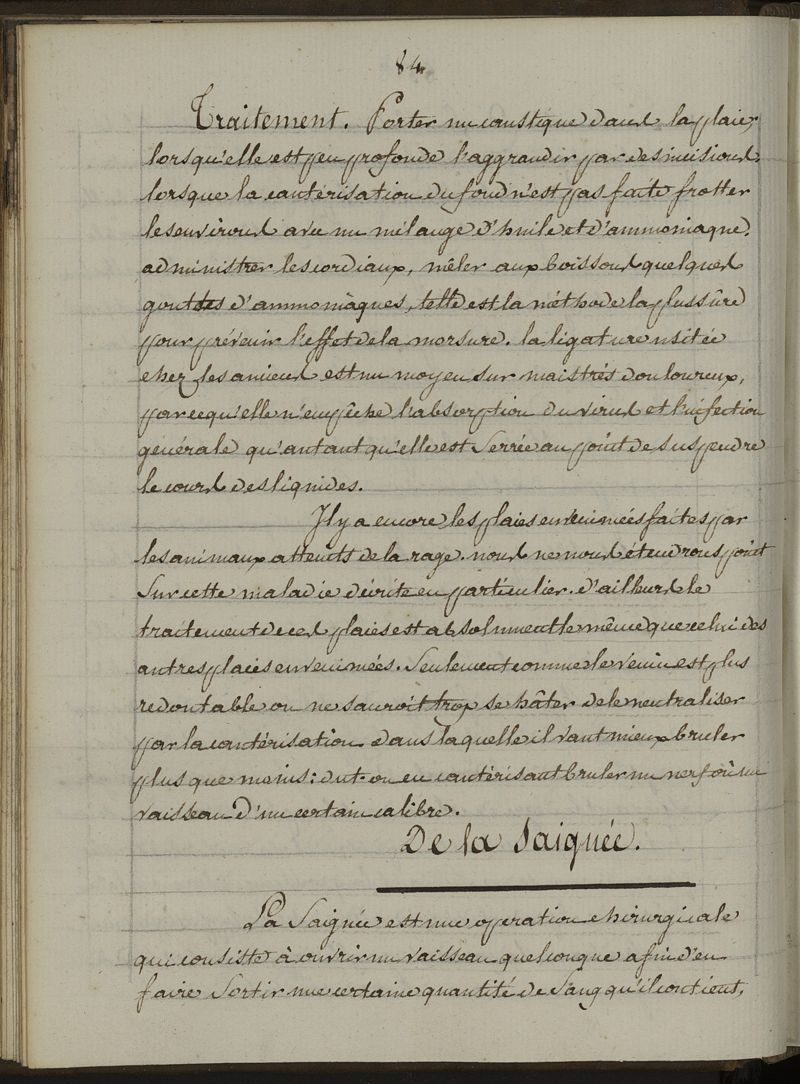 84
Traitement. Porter un caustique dans la plaie,
lorsqu'elle est peu profonde l'aggrandir par des incisions,
lorsque la cautérisation du fond n'est pas faite frotter
les environs avec un mélange d'huile et d'ammoniaque.
administrer les cordiaux, mêler aux boissons quelques
gouttes d'ammoniaques, telle est la méthode la plus sûre
pour prévenir l'effet de la morsure. la ligature usitée
chez les anciens est un moyen sur mais très douloureux,
parcequ'elle n'empêche l'absorption du virus et l'infection
genérale qu'autant qu'elle est Serrée au point de suspendre
le cours des liquides.
Il y a encore les plaies envenimées faites par
les animaux atteints de la rage. nous ne nous étendrons point
Sur cette maladie décrite en particulier. d'ailleurs le
traitement de ces plaies est absolument le même que celui des
autres plaies envenimées. Seulement comme le venin est plus
redoutable on ne sauroit trop se hâter de le neutraliser
par la cautérisation dans laquelle il vaut mieux bruler
plus que moins: dut-on en cautérisant bruler un nerf où un
vaisseau d'un certain calibre.
De la Saignée.
La Saignée est une operation chirurgicale
qui consiste à ouvrir un vaisseau quelconque afin d'en
faire Sortir une certaine quantité de Sang qu'il contient,